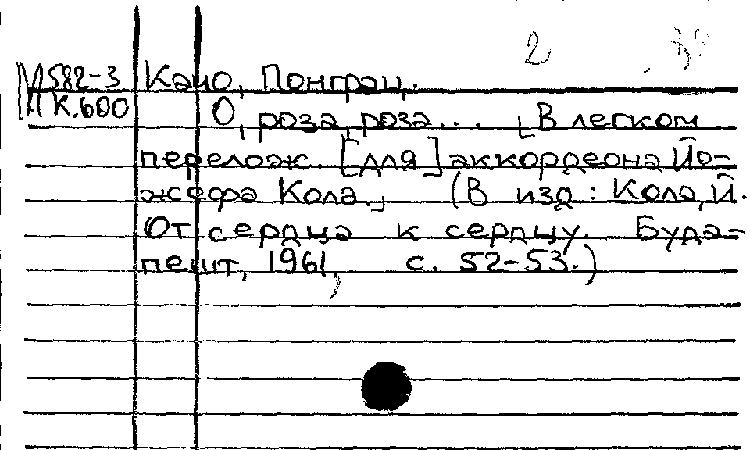 2
М582-3 Качо, Понграц.
К.600 О, роза, роза... [В легком
перелож. [для] аккордеона Йо-
жефа Кола.] (В изд: Кола, Й.
От сердца к сердцу. Буда-
пешт, 1961, с. 52-53.)